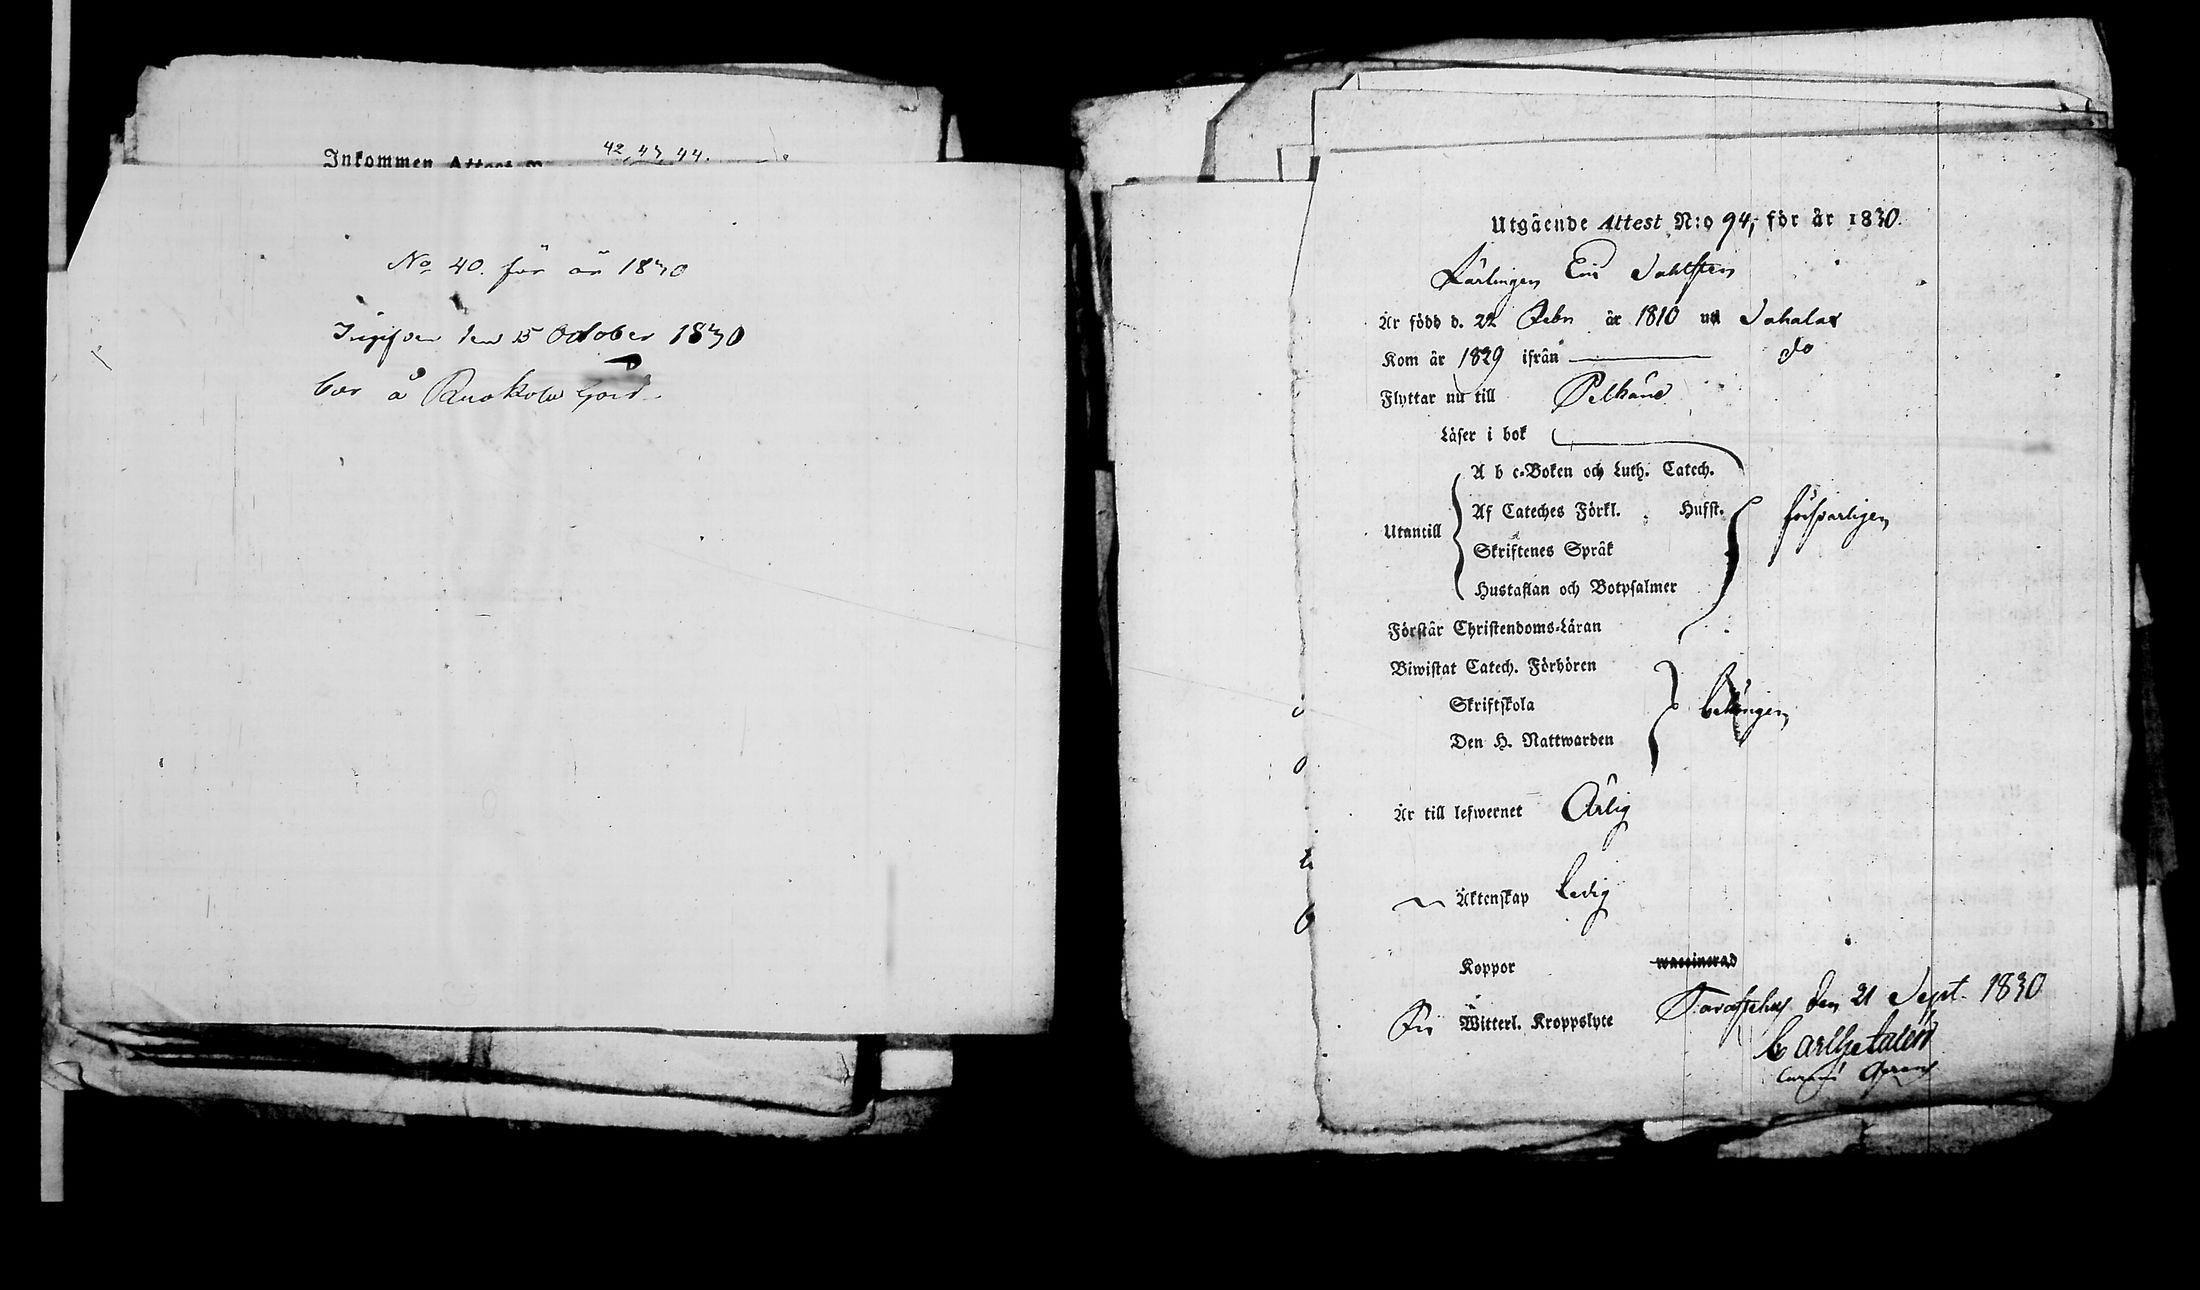 Inkommen Attest 42, 43, 44.
No 40. för år 1830
den 15 October 1830
bor å Ruokola Gård
Utgående Attest N:o 94, för år 1830.
Lärlingen Eric Dahlsten
Är född d. 22 Febr är 1810 uti Sahalax
Kom år 1829 ifrån do
Flyttar nu till Pelkäne
Läser i bok
A b c-Boken och Luth. Catech.
Af Cateches Förkl. Hufst.
Utantill försvarligen
Skriftenes Språk
Hustaflan och Botpsalmer
Förstår Christendoms-Läran
Biwistat Catech. Förhören
Skriftskola
Den H. Nattwarden
Är till lefwernet Ärlig
Äktenskap Ledig
Koppor waccinerad
Fri Witterl. Kroppslyte
Tavastehus den 21 Sept. 1830